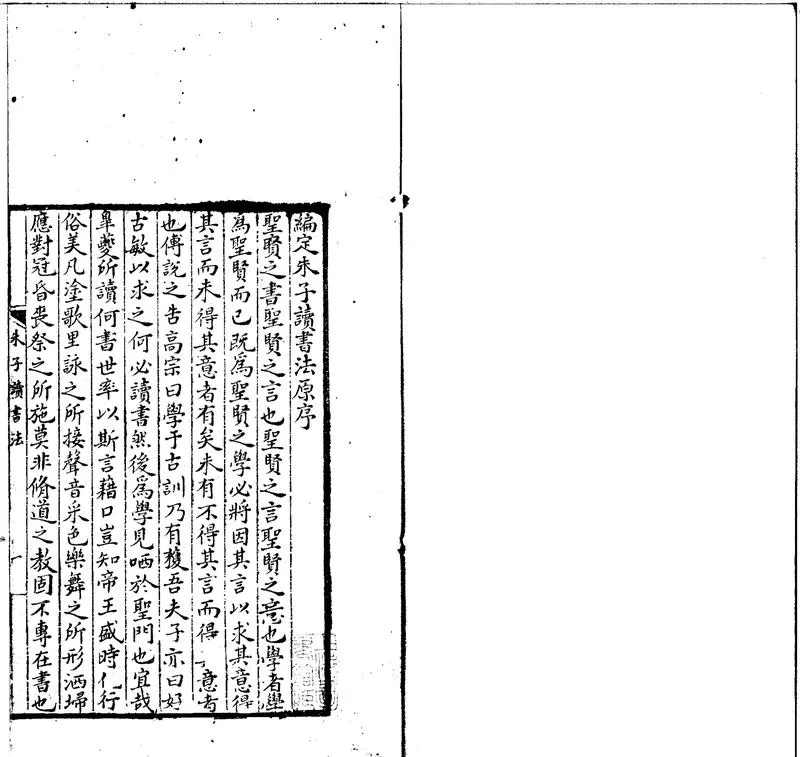 編定朱子讀書法原序
聖賢之書聖賢之言也聖賢之言聖賢之意也學者學
為聖賢而已既為聖賢之學必將因其言以求其意得
其言而未得其意者有矣未有不得其言而得意者
也傅說之告高宗曰學于古訓乃有獲吾夫子亦曰好
古敏以求之何必讀書然後為學見哂於聖門也宜哉
臯夔所讀何書世率以斯言藉口豈知帝王盛時化行
俗美凡塗歌里詠之所接聲音采色樂舞之所形洒埽
應對冠昏喪祭之所施莫非脩道之教固不專在書也
朱子讀書法
一